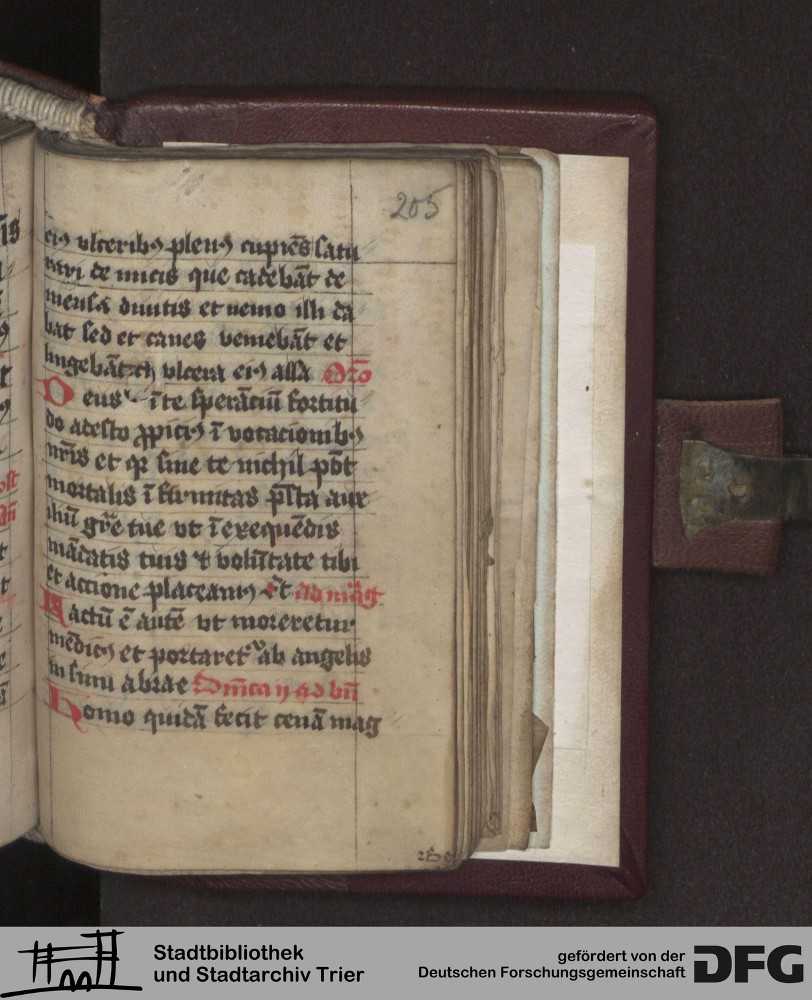 205
eiꝰ vlceribꝰ plenꝰ cupiēs satu
rari de micis que cadebāt de
mensa diuitis et nemo illi da
bat sed et canes veniebāt et
lingebāt vlcera eiꝰ alla Oro
Deus ī te sperāciū fortitu
do adesto ꝓpiciꝰ ī vocacionibꝰ
nr̄is et qr sine te nichil pōt
mortalis ī firmitas p̄sta aux
iliū gr̄e tue vt ī exequēdis
mādatis tuis et volūtate tibi
et accione placeamꝰ ad mag
Factū ē autē vt moreretur
mēdicꝰ et portaret ab angelis
in sinu abrae Dm̄ica ij ad bn̄
Homo quidā fecit cenā mag
Stadtbibliothek
und Stadtarchiv Trier
gefördert von der
Deutschen Forschungsgemeinschaft
DFG